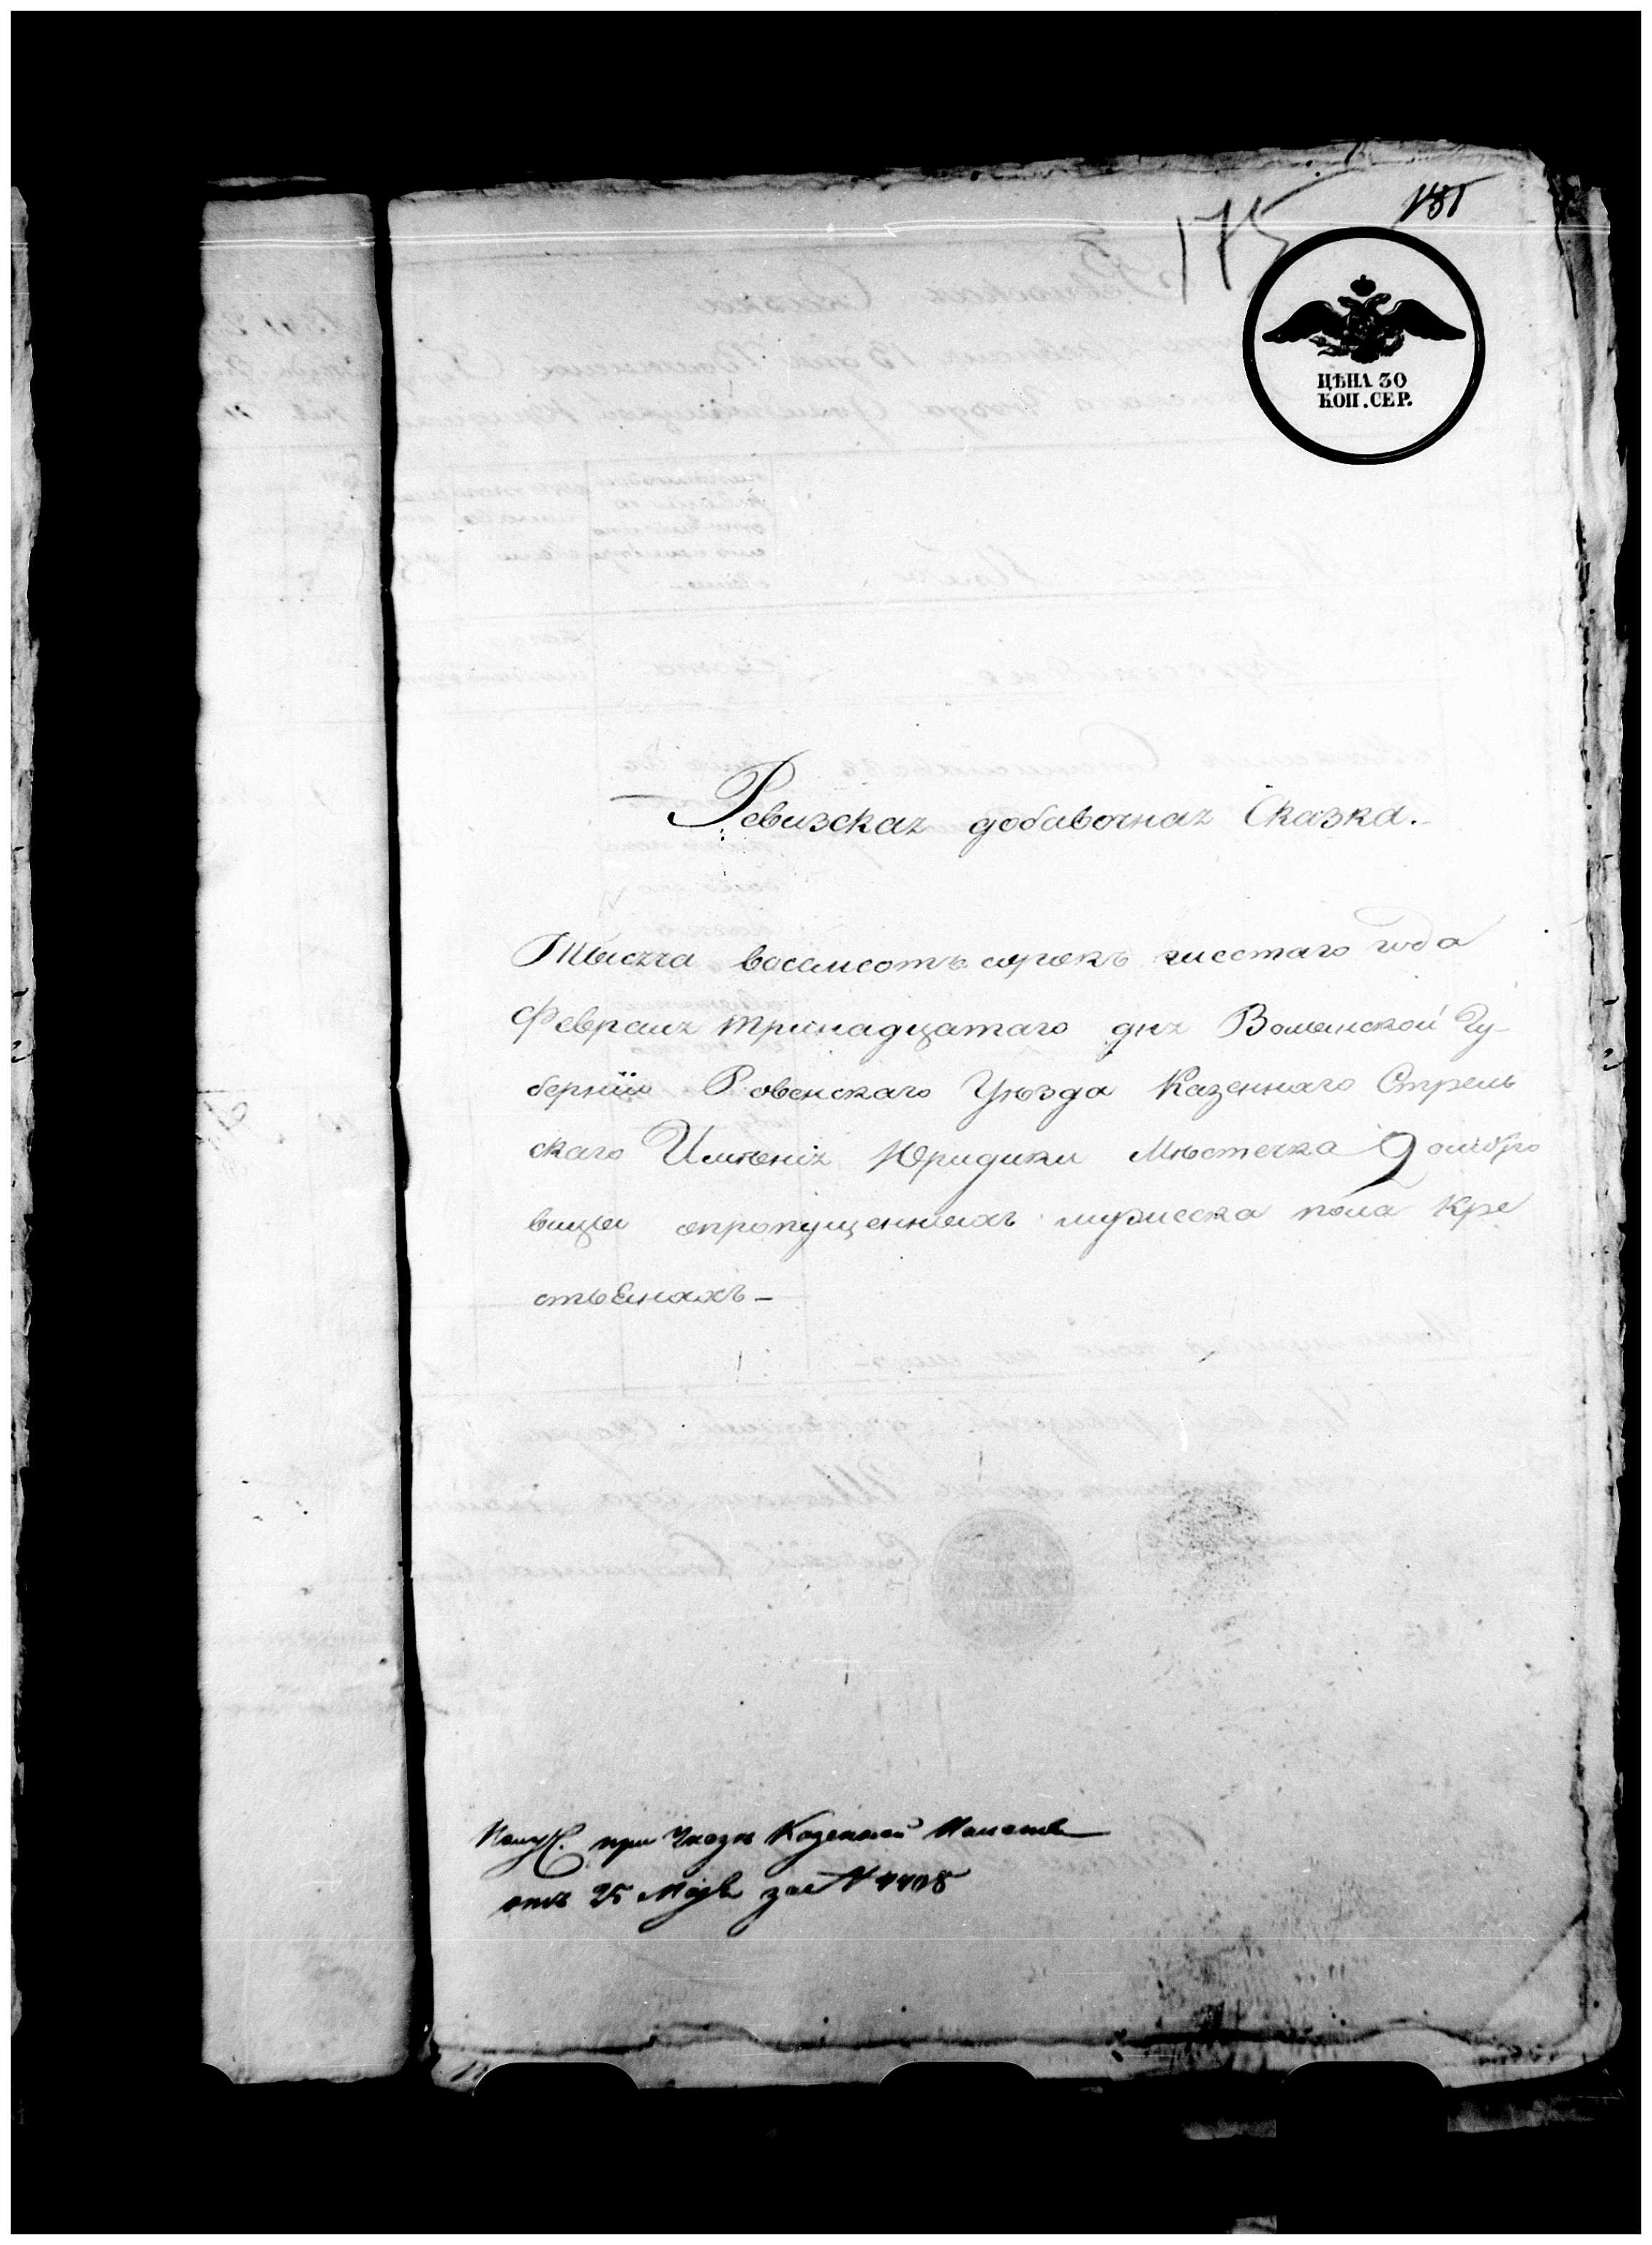 175
ЦѢНА 30
КОП. СЕР.
Ревизская добавочная Сказка.
Тысяча восемсотъ сорокъ шестаго года
Февраля тринадцатаго дня Волынской Гу-
берніи Ровенскаго Уѣзда Казеннаго Стрель
скаго Имѣнія Юридики Мѣстечка Домбро
вицы опропущенныхъ мужеска пола кре
стьянахъ-
при Указѣ Казенной Палаты
отъ 25 Маія за № 4408